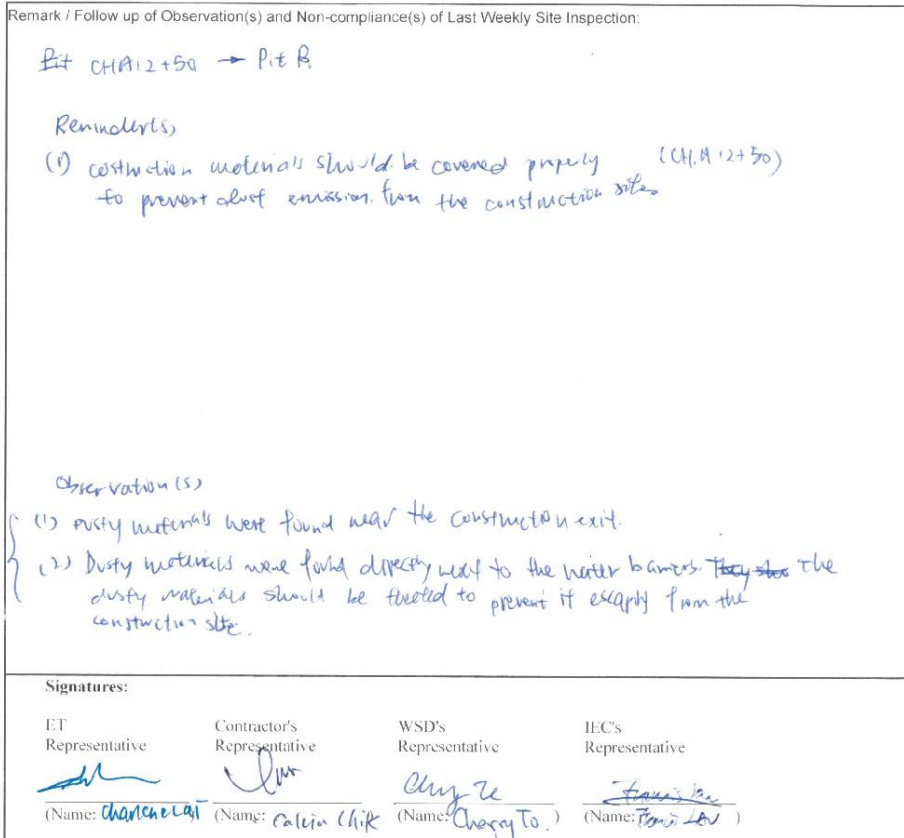 Remark / Follow up of Observation(s) and Non-compliance(s) of Last Weekly Site Inspection:
Pit CHA12+50 → Pit B.
Reminder(s)
(1) costruction materials should be covered properly (CH.A 12+50)
to prevent dust emission from the construction sites
Observation(s)
(1) Dusty materials were found near the construction exit.
(2) Dusty materials were found directly next to the water barriers. They The
dusty materials should be treated to prevent it escaping from the
construction site.
Signatures:
ET Contractor's WSD's IEC's
Representative Representative Representative Representative
(Name: (Name: Calvin Chik (Name: Cherry To. ) (Name: Francis Lau )